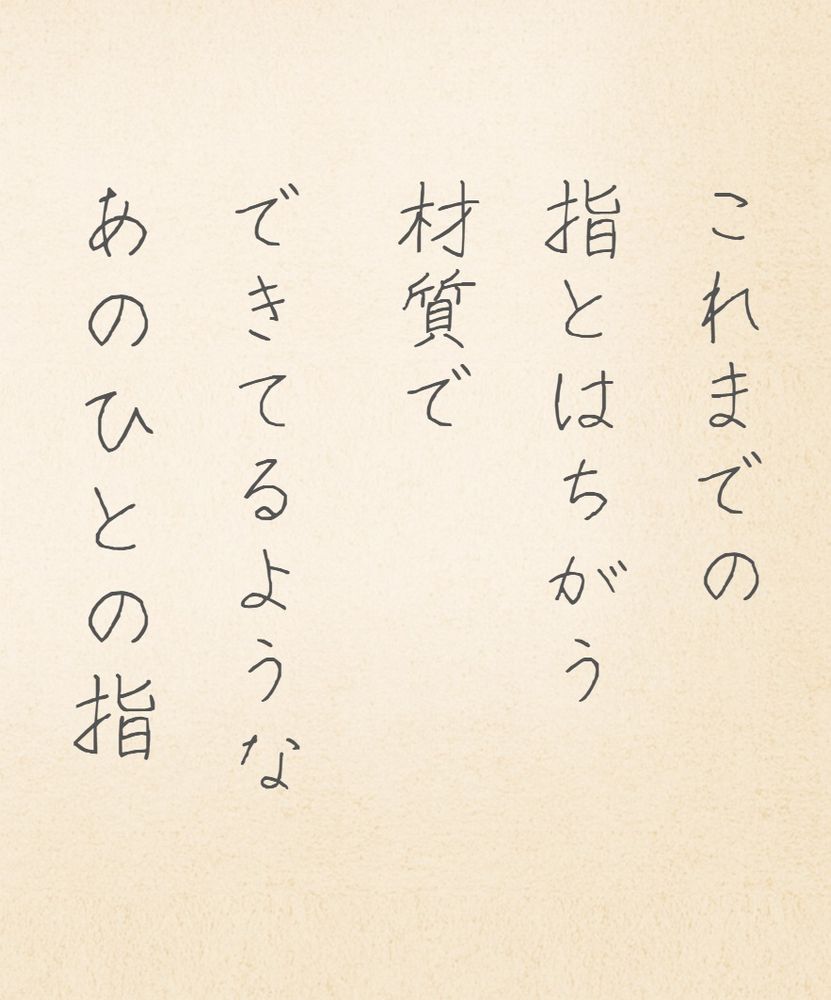 これまでの
指とはちがう
材質で
できてるような
あのひとの指